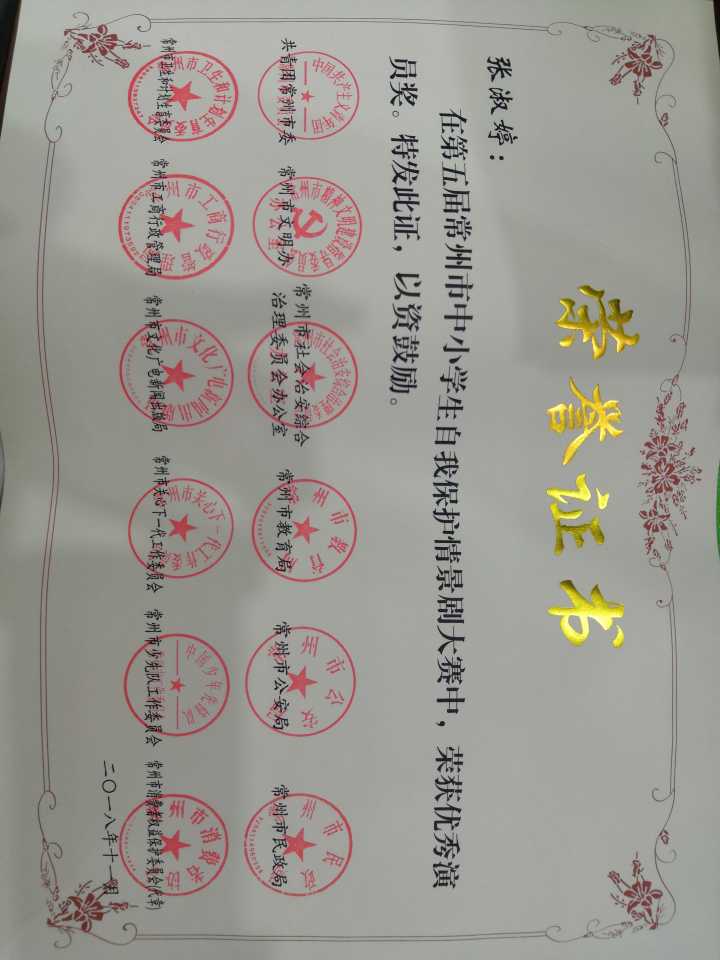 荣誉证书
张淑婷：
在第五届常州市中小学生自我保护情景剧大赛中，荣获优秀演
员奖。特发此证，以资鼓励。
共青团常州市委 常州市文明办 常州市社会治安综合治理委员会办公室 常州市教育局 常州市公安局 常州市民政局
常州市卫生和计划生育委员会 常州市工商行政管理局 常州市文化广电新闻出版局 常州市关心下一代工作委员会 常州市少先队工作委员会 常州市消费者权益保护委员会(代章)
二〇一八年十一月